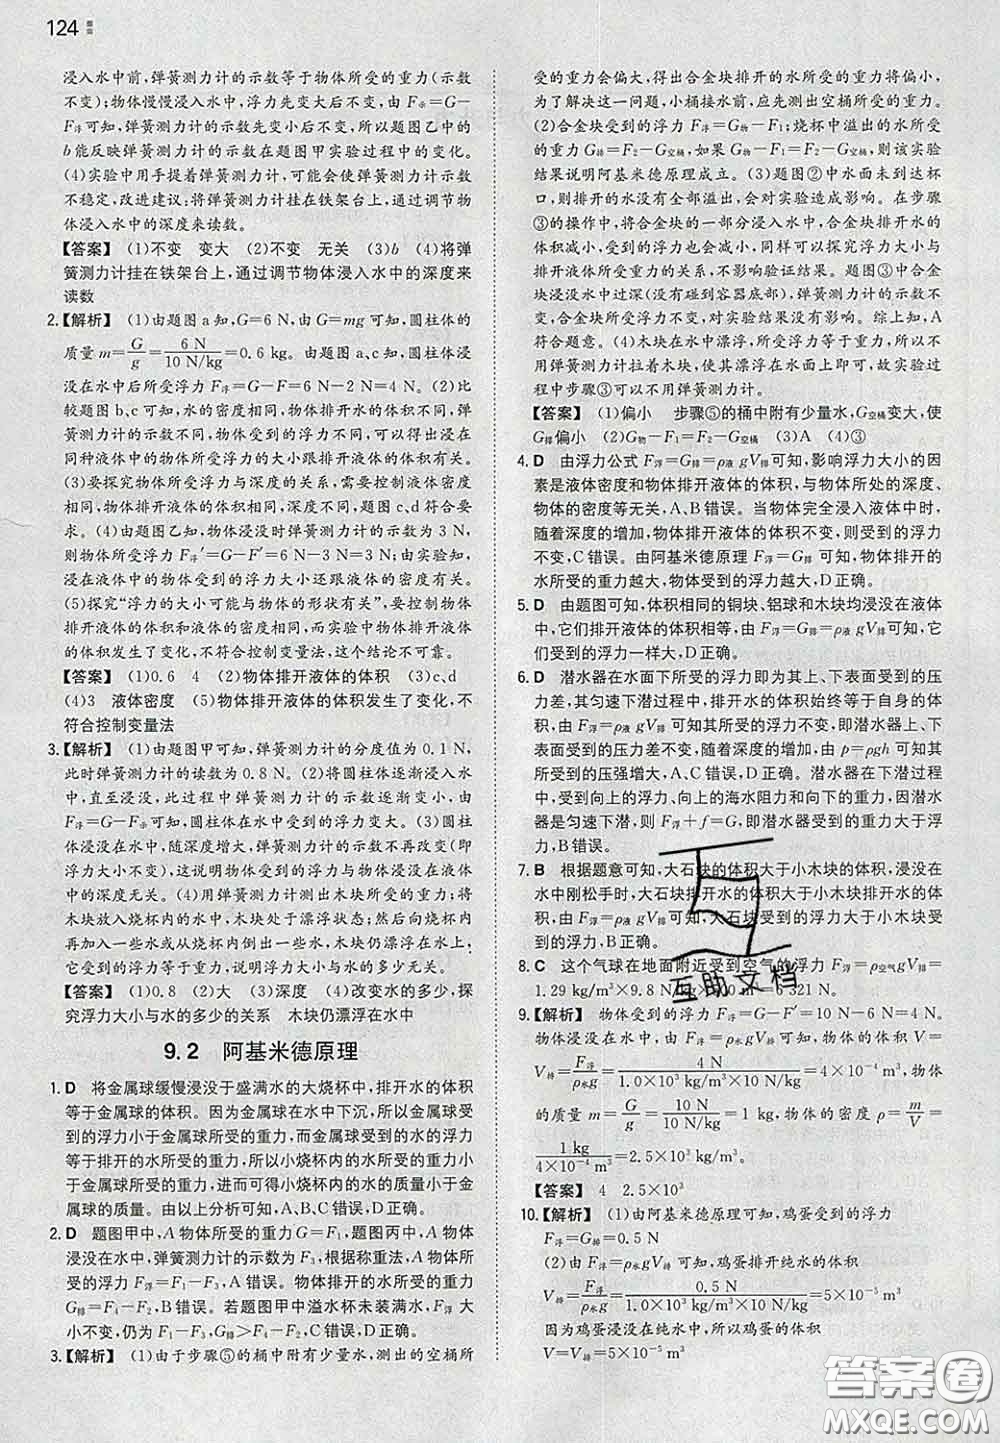 124
浸入水中前,弹簧测力计的示数等于物体所受的重力(示数
不变);物体慢慢浸入水中,浮力先变大后不变,由 F示=G-
F浮 可知,弹簧测力计的示数先变小后不变,所以题图乙中的
b能反映弹簧测力计的示数在题图甲实验过程中的变化。
(4)实验中用手提着弹簧测力计,可能会使弹簧测力计示数
不稳定,改进建议:将弹簧测力计挂在铁架台上,通过调节物
体浸入水中的深度来读数。
【答案】 (1)不变 变大 (2)不变 无关 (3)b (4)将弹
簧测力计挂在铁架台上,通过调节物体浸入水中的深度来
读数
2.【解析】 (1)由题图a知,G=6 N,由G=mg可知,圆柱体的
质量 m=G/g=6 N/10 N/kg=0.6 kg。由题图a、c知,圆柱体浸
没在水中后所受浮力 F浮=G-F=6 N-2 N=4 N。(2)比
较题图b、c可知,水的密度相同,物体排开水的体积不同,弹
簧测力计的示数不同,物体受到的浮力不同,可以得出浸在
同种液体中的物体所受浮力的大小跟排开液体的体积有关。
(3)要探究物体所受浮力与深度的关系,需要控制液体密度
相同,物体排开液体的体积相同,深度不同,题图c、d符合要
求。(4)由题图乙知,物体浸没时弹簧测力计的示数为3 N,
则物体所受浮力 F浮′=G-F′=6 N-3 N=3 N;由实验知,
浸在液体中的物体受到的浮力大小还跟液体的密度有关。
(5)探究“浮力的大小可能与物体的形状有关”,要控制物体
排开液体的体积和液体的密度相同,而实验中物体排开液体
的体积发生了变化,不符合控制变量法,这个结论不可靠。
【答案】 (1)0.6 4 (2)物体排开液体的体积 (3)c、d
(4)3 液体密度 (5)物体排开液体的体积发生了变化,不
符合控制变量法
3.【解析】 (1)由题图甲可知,弹簧测力计的分度值为0.1 N,
此时弹簧测力计的读数为0.8 N。(2)将圆柱体逐渐浸入水
中,直至浸没,此过程中弹簧测力计的示数逐渐变小,由
F浮=G-F示 可知,圆柱体在水中受到的浮力变大。(3)圆
柱体浸没在水中后,随深度增大,弹簧测力计示数不再改变(即
F浮 大小不变),这说明物体受到浮力的大小与其在液体中的
深度无关。(4)用弹簧测力计测出木块所受的重力,再将
木块放入烧杯内的水中,木块处于漂浮状态;然后向烧杯内
再加入一些水或从烧杯内倒出一些水,木块仍漂浮在水上,
它受到的浮力等于重力,说明浮力与水的多少无关。
【答案】 (1)0.8 (2)大 (3)深度 (4)改变水的多少,探
究浮力大小与水的多少的关系 木块仍漂浮在水中
9.2 阿基米德原理
1. D 将金属球缓慢浸没于盛满水的大烧杯中,排开水的体积
等于金属球的体积。因为金属球在水中下沉,所以金属球受到
的浮力小于金属球所受的重力;而金属球受到的水的浮力
等于排开的水所受的重力,所以小烧杯内水所受的重力小于
金属球所受的重力,进而可得小烧杯中水的质量一定小于金
属球的质量。由以上分析可知,A、B、C错误,D正确。
2. D 题图甲中,A物体所受的重力G=F₁,题图丙中,A物体
浸没在水中,弹簧测力计的示数为F₃,根据称重法,A物体所
受的浮力 F浮=F₁-F₃,A错误。物体排开的水所受的重力
G排=F₄-F₂,B错误。若题图甲中溢水杯未装满水,F浮 大
小不变,仍为F₁-F₃,G排>F₄-F₂,C错误,D正确。
3.【解析】 (1)由于步骤⑤的桶中附有少量水,测出的空桶所
受的重力会偏大,得出合金块排开的水所受的重力将偏小,
为了解决这一问题,小桶接水前,应先测出空桶所受的重力。
(2)合金块受到的浮力 F浮=G物-F₁;烧杯中溢出的水所受
的重力 G排=F₂-G空桶,如果 G物-F₁=F₂-G空桶,则该实验
结果说明阿基米德原理成立。(3)题图②中水面未到达杯
口,则排开的水没有全部溢出,会对实验造成影响。在步骤
③的操作中,将合金块的一部分浸入水中,合金块排开水的体
积减小,受到的浮力也会减小,但可以探究浮力大小与
排开液体所受重力的关系,不影响验证结果。题图③中合金
块浸没水中过深(没有碰到容器底部),弹簧测力计示数不
变,合金块受到的浮力不变,对实验没有影响。综上知,A
符合题意。(4)木块在水中漂浮,所受浮力等于重力,所以不
用弹簧测力计拉着木块,木块会漂浮在水面上即可,故实验过
程中步骤③可以不用弹簧测力计。
【答案】 (1)偏小 步骤⑤的桶中附有少量水,G空桶变大,使
G排偏小 (2)G物-F₁=F₂-G空桶 (3)A (4)③
4. D 由浮力公式 F浮=G排=ρ液 gV排 可知,影响浮力大小的因
素是液体密度和物体排开液体的体积,与物体所处的深度、
物体的体积等无关,A、B错误。当物体完全浸入液体中时,
随着深度的增加,物体排开液体的体积不变,受到的浮力
不变,C错误。由阿基米德原理 F浮=G排 可知,物体排开的
水所受的重力越大,物体受到的浮力越大,D正确。
5. D 由题图可知,体积相同的铜块、铝球和木块均浸没在液体
中,它们排开液体的体积相等,由 F浮=G排=ρ液 gV排 可知,它
们受到的浮力一样大,D正确。
6. D 潜水器在水面下所受的浮力即为其上、下表面所受的压
力差,其匀速下潜过程中,排开水的体积始终等于自身的体
积,由 F浮=ρ液 gV排 可知其所受的浮力不变,即潜水器上、下
表面受到的压力差不变,随着深度的增加,由 p=ρgh 可知,
所受的压强增大,A、C错误,D正确。潜水器在下潜过程
中,受到向上的浮力、向上的海水阻力和向下的重力,因潜水
器是匀速下潜,则 F浮+f=G,即潜水器受到的重力大于浮
力,B错误。
7. B 根据题意可知,大石块的体积大于小木块的体积,浸没在
水中刚松手时,大石块排开水的体积大于小木块排开水的体
积,由 F浮=ρ液 gV排 可知,大石块受到的浮力大于小木块受
到的浮力,B正确。
8. C 这个气球在地面附近受到空气的浮力 F浮=ρ空气gV排=
1.29 kg/m³×9.8 N/kg×500 m³=6 321 N。
9.【解析】 物体受到的浮力 F浮=G-F′=10 N-6 N=4 N。
物体浸没在水中,由 F浮=ρ水gV排 可知,物体的体积 V=
V排=F浮/ρ水g=4 N/1.0×10³ kg/m³×10 N/kg=4×10⁻⁴ m³,物体
的质量 m=G/g=10 N/10 N/kg=1 kg,物体的密度 ρ=m/V=
1 kg/4×10⁻⁴ m³=2.5×10³ kg/m³。
【答案】 4 2.5×10³
10.【解析】 (1)由阿基米德原理可知,鸡蛋受到的浮力
F浮=G排=0.5 N
(2)由 F浮=ρ水gV排 可知,鸡蛋排开纯水的体积
V排=F浮/ρ水g=0.5 N/1.0×10³ kg/m³×10 N/kg=5×10⁻⁵ m³
因为鸡蛋浸没在纯水中,所以鸡蛋的体积
V=V排=5×10⁻⁵ m³
互助文档
答案圈
MXQE.COM